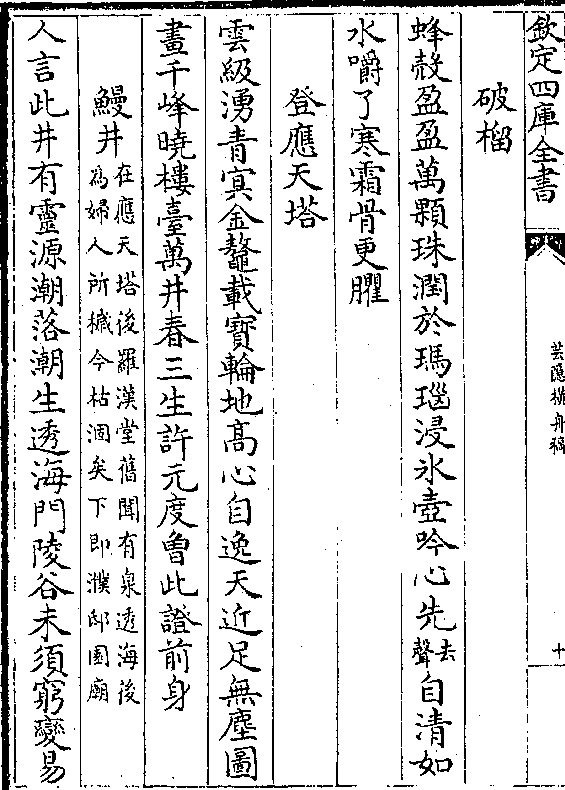 欽定四庫全書
芸隱橫舟稿
十
破榴
蜂殼盈盈萬顆珠潤於瑪瑙浸氷壺吟心先去聲自清如
水嚼了寒霜骨更臞
登應天塔
雲級湧青㝠金鼇載寶輪地髙心自逸天近足無塵圖
畫千峰曉樓臺萬井春三生許元度曽此證前身
鰻井在應天塔後羅漢堂舊聞有泉透海後
為婦人所樾今枯涸矣下即濮邸園廟
人言此井有靈源潮落潮生透海門陵谷未須窮變易